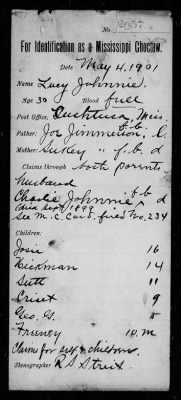 2957
For Identification as a Mississippi Choctaw.
Date May 4, 1901
Name Lucy Johnnie.
Age 30 Blood full
Post Office, Miss.
Father: Joe Jimmerson f.b. d
Mother: Sukey " f.b d
Claims through both parents
husband
Charlie Johnnie f.b d
died Sept 1899
See M.C. Card filed No. 234
Children:
Josie 16
Hickman 14
Sutt 11
9
Geo. G. 5
Freeney 10 m
Claim for self & children
Stenographer R S Streit